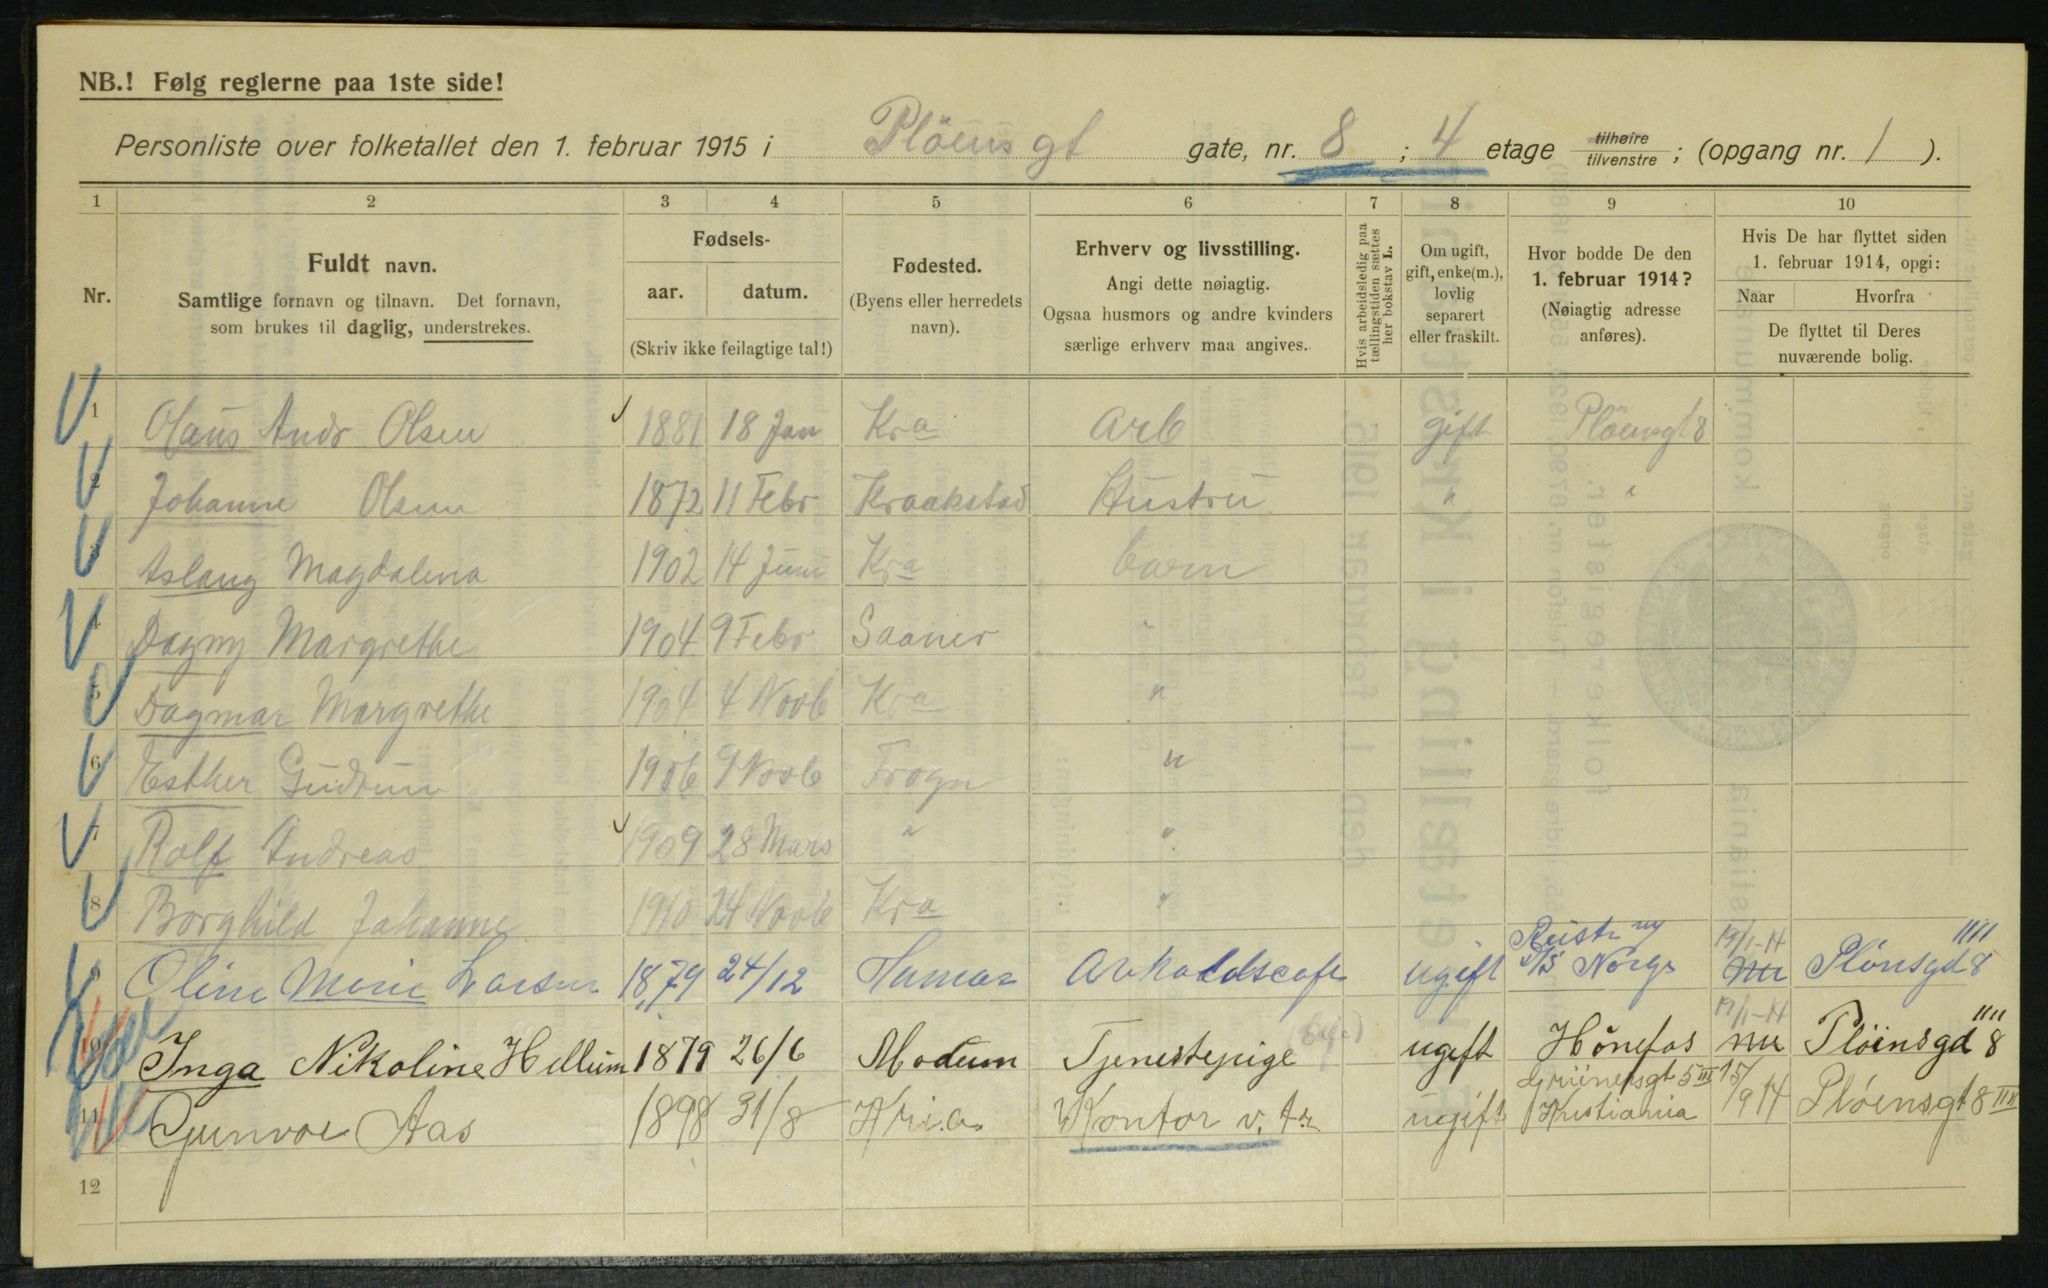 NB.! Følg reglerne paa 1ste side!
Personliste over folketallet den 1. februar 1915 i Plöens gt gate, nr. 8 ; 4 etage tilhøire tilvenstre ; (opgang nr. 1 ).
1 2 3 4 5 6 7 8 9 10
Nr.
Fuldt navn.
Samtlige fornavn og tilnavn. Det fornavn,
som brukes til daglig, understrekes.
Fødsels-
aar. datum.
(Skriv ikke feilagtige tal!)
Fødested.
(Byens eller herredets
navn).
Erhverv og livsstilling.
Angi dette nøiagtig.
Ogsaa husmors og andre kvinders
særlige erhverv maa angives.
Hvis arbeidsledig paa
tællingstiden sættes
her bokstav L.
Om ugift,
gift, enke(m.),
lovlig
separert
eller fraskilt.
Hvor bodde De den
1. februar 1914?
(Nøiagtig adresse
anføres).
Hvis De har flyttet siden
1. februar 1914, opgi:
Naar Hvorfra
De flyttet til Deres
nuværende bolig.
1 Olaus Andr Olsen 1881 18 Jan Kra Arb gift Plöensgt 8
2 Johanne Olsen 1872 11 Febr Kraakstad Hustru " "
3 Aslaug Magdalena 1902 14 Juni Kra barn
4 Dagny Margrethe 1904 9 Febr Saaner "
5 Dagmar Margrethe 1904 4 Novb Kra "
6 Esther Gudrun 1906 9 Novb Frogn "
7 Rolf Andreas 1909 28 Mars " "
8 Borghild Johanne 1910 24 Novb Kra "
9 Oline Marie Larsen 1879 24/12 Hamar ugift Norge 19/1-14 Plönsgd 8
10 Inga Nikoline Hellum 1879 26/6 Modum Tjenestepige ugift Hönefos 19/1-14 Plöinsgd 8
11 Gunvor Aas 1898 31/8 Kr.a. Kontor ugift Grünersgt 5 III Kristiania 15/ 1914 Plöensgt 8 IIII
12